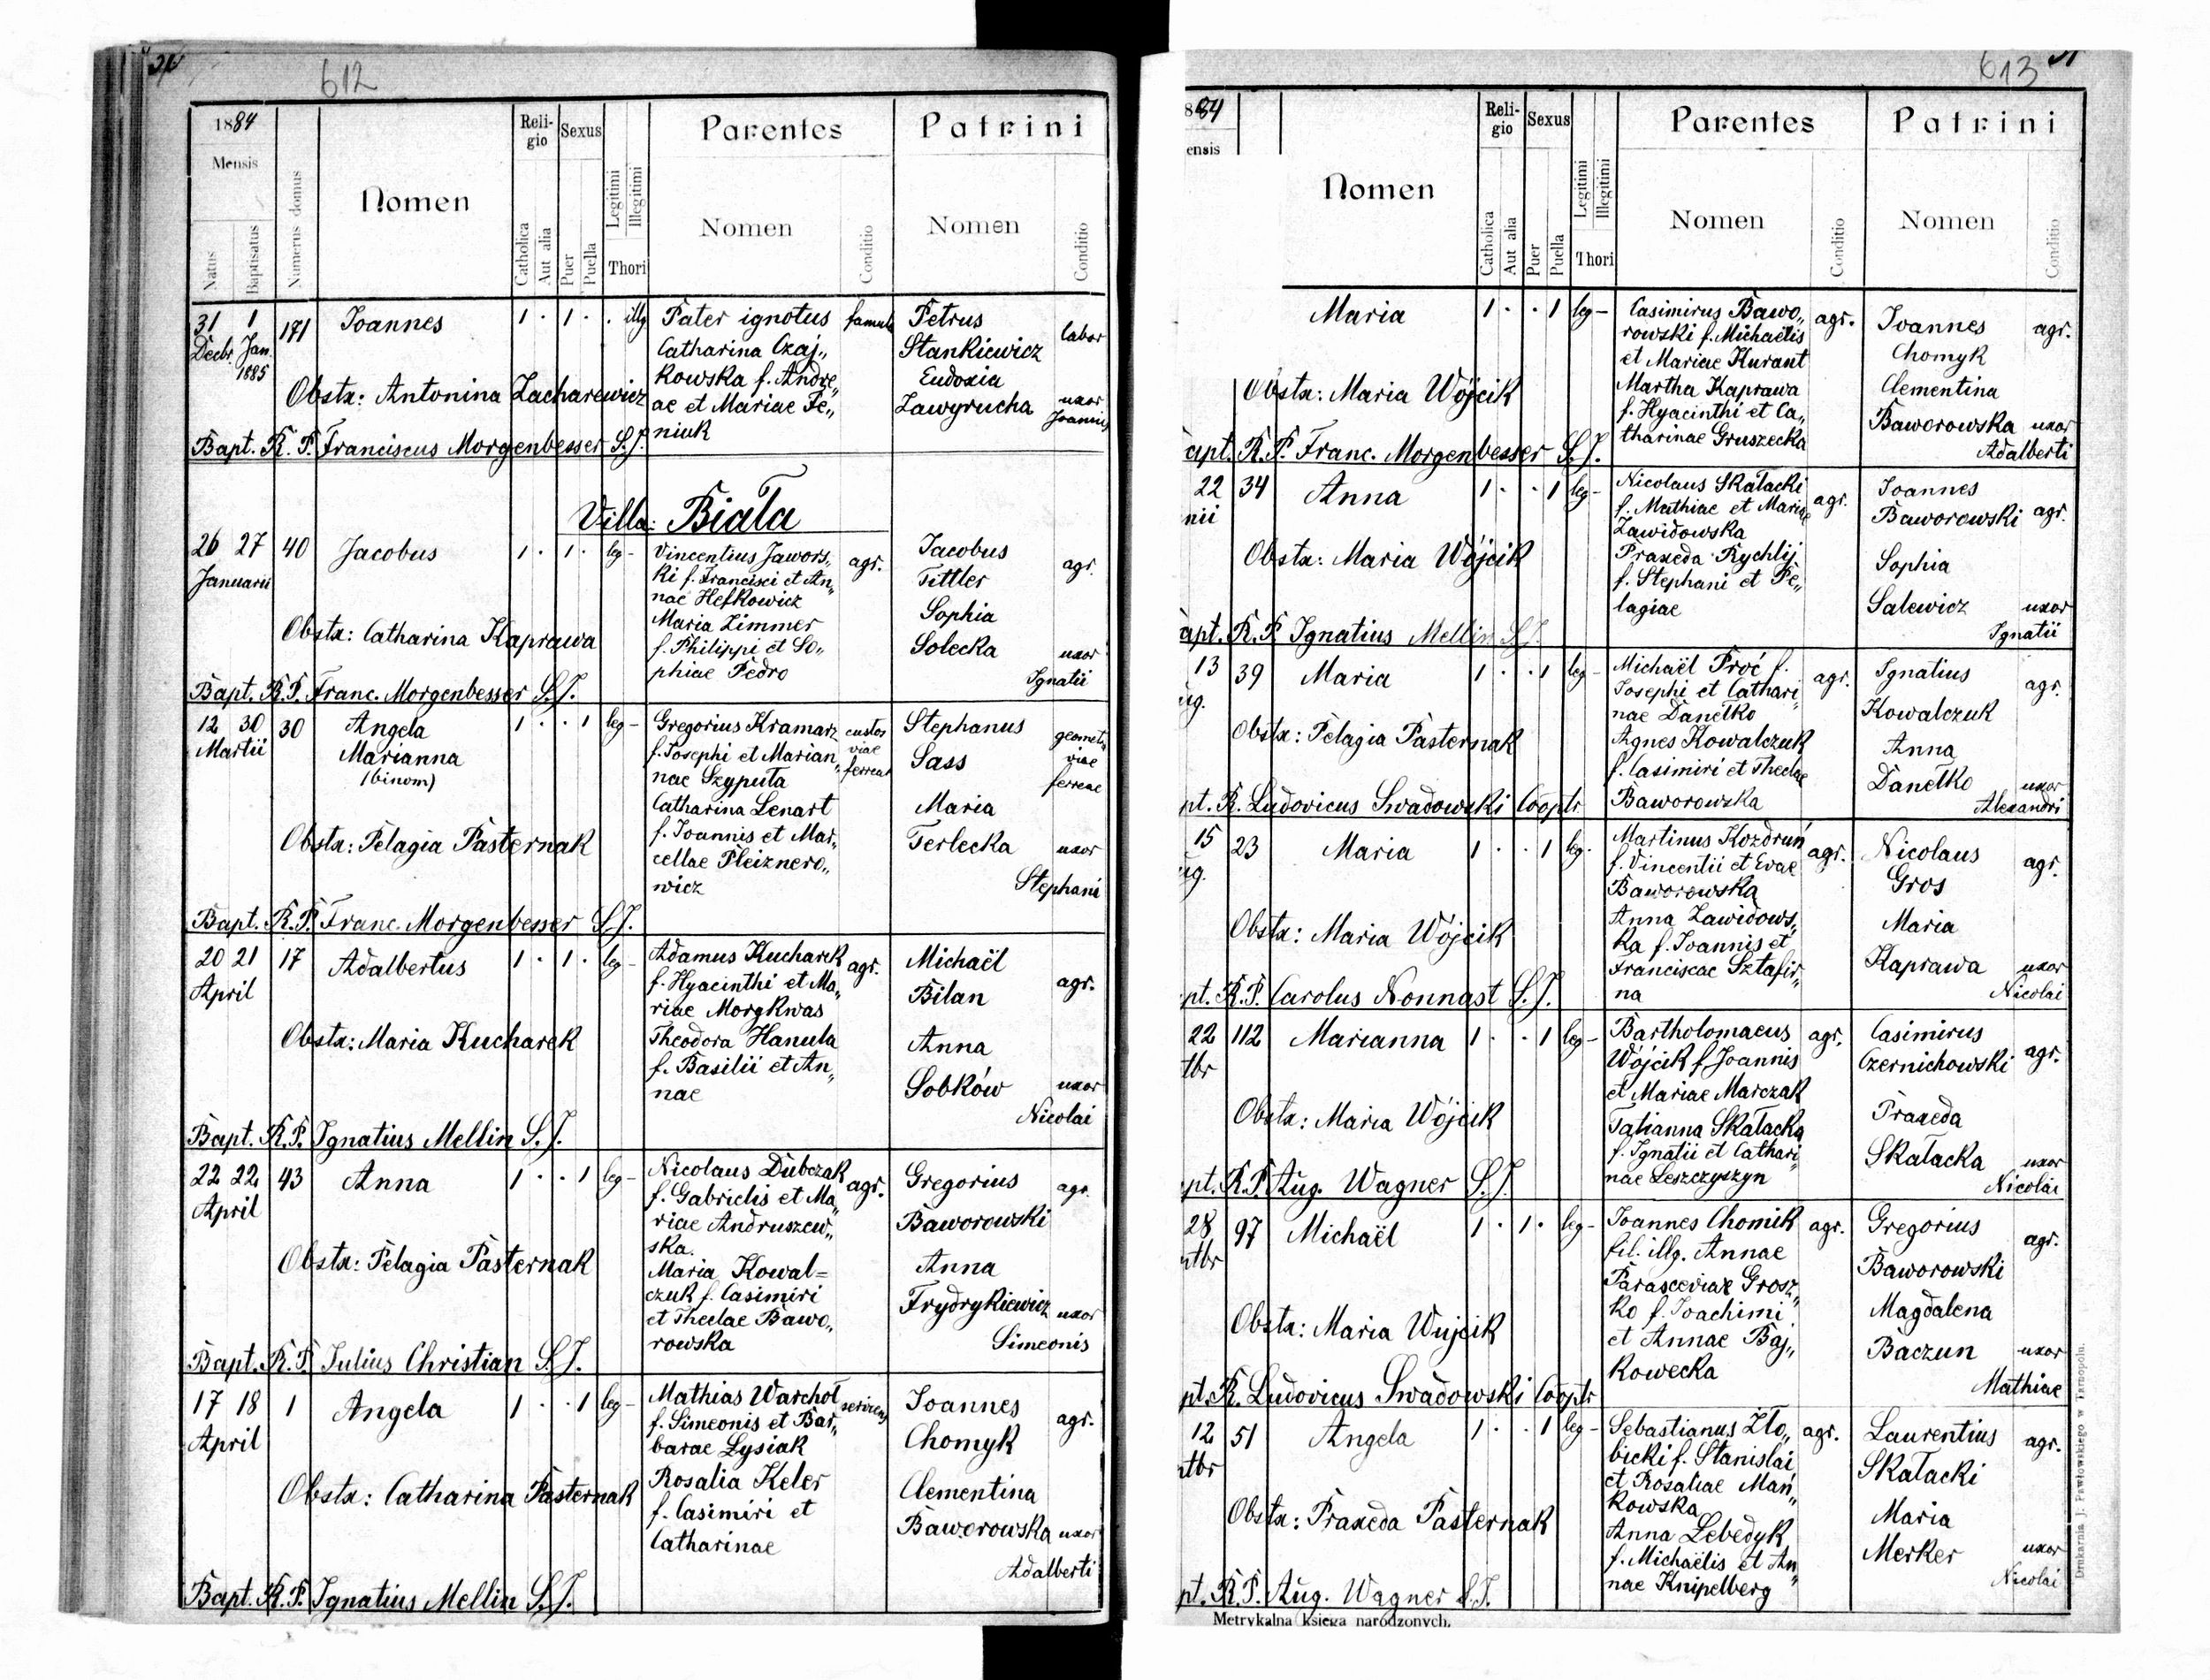 612
1884
Mensis
Natus
Baptisatus
Numerus domus
Nomen
Reli-
gio
Catholica
Aut alia
Sexus
Puer
Puella
Legitimi
Illegitimi
Thori
Parentes
Nomen
Conditio
Patrini
Nomen
Conditio
31 1 171 Joannes 1 · 1 · · illg Pater ignotus famula Petrus labor
Decbr Jan. Catharina Czaj„ Stankiewicz
1885 kowska f. Andre„ Eudoxia
Obstx: Antonina Zacharewicz ae et Mariae Fe„ Zawyrucha uxor
niuk Joannis
Bapt. R. P. Franciscus Morgenbesser S.J.
Villa: Biała
26 27 40 Jacobus 1 · 1 · leg- Vincentius Jawors„ agr. Jacobus agr.
Januarii ki f. Francisci et An„ Tittler
nae Hefkowicz Sophia
Maria Zimmer Solecka uxor
Obstx: Catharina Kaprawa f. Philippi et So„ Ignatii
phiae Pedro
Bapt. R.P. Franc. Morgenbesser S.J.
12 30 30 Angela 1 · · 1 leg- Gregorius Kramarz custos Stephanus geomet.
Martii Marianna f. Josephi et Marian„ viae Sass viae
(binom) nae Szyputa ferreae ferreae
Catharina Lenart Maria
f. Joannis et Mar„ Terlecka uxor
Obstx: Pelagia Pasternak cellae Pleiznero„ Stephani
wicz
Bapt. R.P. Franc. Morgenbesser S.J.
20 21 17 Adalbertus 1 · 1 · leg- Adamus Kucharek agr. Michaël agr.
April f. Hyacinthi et Ma„ Bilan
riae Morgkwas
Obstx: Maria Kucharek Theodora Hanula Anna
f. Basilii et An„ Sobków uxor
nae Nicolai
Bapt. R.P. Ignatius Mellin S.J.
22 22 43 Anna 1 · · 1 leg- Nicolaus Dubczak agr. Gregorius agr.
April f. Gabrielis et Ma„ Baworowski
riae Andruszew„
ska.
Obstx: Pelagia Pasternak Maria Kowal= Anna
czuk f. Casimiri Frydrykiewicz uxor
et Theclae Bawo„ Simeonis
rowska
Bapt. R.P. Julius Christian S.J.
17 18 1 Angela 1 · · 1 leg- Mathias Warchoł serviens Joannes agr.
April f. Simeonis et Bar„ Chomyk
barae Lysiak
Obstx: Catharina Pasternak Rosalia Keler Clementina
f. Casimiri et Baworowska uxor
Catharinae Adalberti
Bapt. R.P. Ignatius Mellin S.J.
613
884
ensis
Nomen
Reli-
gio
Catholica
Aut alia
Sexus
Puer
Puella
Legitimi
Illegitimi
Thori
Parentes
Nomen
Conditio
Patrini
Nomen
Conditio
Maria 1 · · 1 leg- Casimirus Bawo„ agr. Joannes agr.
rowski f. Michaëlis Chomyk
et Mariae Kurant Clementina
Obstx: Maria Wójcik Martha Kaprawa Baworowska uxor
f. Hyacinthi et Ca„ Adalberti
tharinae Gruszecka
apt. R.P. Franc. Morgenbesser S.J.
22 34 Anna 1 · · 1 leg- Nicolaus Skałacki agr. Joannes agr.
nii f. Mathiae et Mariae Baworowski
Zawidowska
Obstx: Maria Wójcik Praxeda Rychlij Sophia
f. Stephani et Pe„ Salewicz uxor
lagiae Ignatii
apt. R.P. Ignatius Mellin S.J.
13 39 Maria 1 · · 1 leg- Michaël Proć f. agr. Ignatius agr.
ug. Josephi et Cathari„ Kowalczuk
nae Danełko
Obstx: Pelagia Pasternak Agnes Kowalczuk Anna
f. Casimiri et Theclae Danełko uxor
Baworowska Alexandri
pt. R. Ludovicus Swadowski Cooptr
15 23 Maria 1 · · 1 leg- Martinus Kozdruń agr. Nicolaus agr.
ug. f. Vincentii et Evae Gros
Baworowska
Obstx: Maria Wójcik Anna Zawidows„ Maria
ka f. Joannis et Kaprawa uxor
Franciscae Sztafir„ Nicolai
na
pt. R.P. Carolus Nonnast S.J.
22 112 Marianna 1 · · 1 leg- Bartholomaeus agr. Casimirus agr.
tbr Wójcik f. Joannis Czernichowski
et Mariae Marczak
Obstx: Maria Wójcik Tatianna Skałacka Praxeda
f. Ignatii et Cathari„ Skałacka uxor
nae Leszczyszyn Nicolai
pt. R.P. Aug. Wagner S.J.
28 97 Michaël 1 · 1 · leg- Joannes Chomik agr. Gregorius agr.
ntbr fil. illg. Annae Baworowski
Parasceviae Grosz„
Obstx: Maria Wujcik ko f. Joachimi Magdalena
et Annae Baj„ Baczun uxor
kowecka Mathiae
pt. R. Ludovicus Swadowski Cooptr
12 51 Angela 1 · · 1 leg- Sebastianus Zło„ agr. Laurentius agr.
ntbr bicki f. Stanislai Skałacki
et Rosaliae Mań„
kowska
Obstx: Praxeda Pasternak Anna Lebedyk Maria
f. Michaëlis et An„ Merker uxor
nae Knipelberg Nicolai
pt. R.P. Aug. Wagner S.J.
Metrykalna księga narodzonych.
Drukarnia J. Pawłowskiego w Tarnopolu.